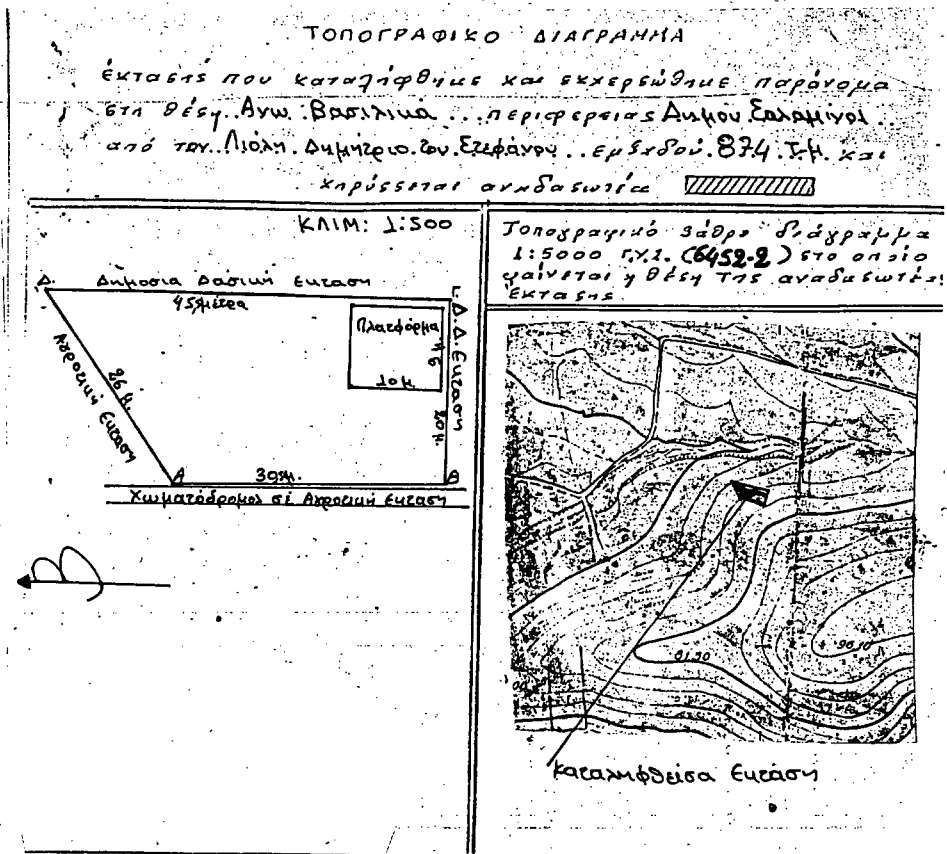 ΤΟΠΟΓΡΑΦΙΚΟ ΔΙΑΓΡΑΜΜΑ
έκτασης που καταλήφθηκε και εκχερσώθηκε παράνομα
στη θέση..Ανω..Βασιλικά...περιφερείας Δήμου.Σαλαμίνος..
από τον..Λιόλη.Δημήτριο.του.Στεφάνου..εμβαδού.874.Τ.Μ. και
κηρύσσεται αναδασωτέα
ΚΛΙΜ: 1:500
Δ
Δημοσια Δασικη Εκταση
45 μέτρα
Γ
Πλατφόρμα
9 μ
10 μ.
Δ.Δ. Εκταση
20 μ.
Αγροτική Εκταση
26 μ.
Α
39 μ.
Β
Χωματόδρομος σέ Αγροτική Εκταση
Β
Τοπογραφικό βάθρο διάγραμμα
1:5000 Γ.Υ.Σ. (6452-2) στο οποίο
φαίνεται η θέση της αναδασωτέας
Έκτασης
81.30
96.10
Καταληφθείσα Εκτάση